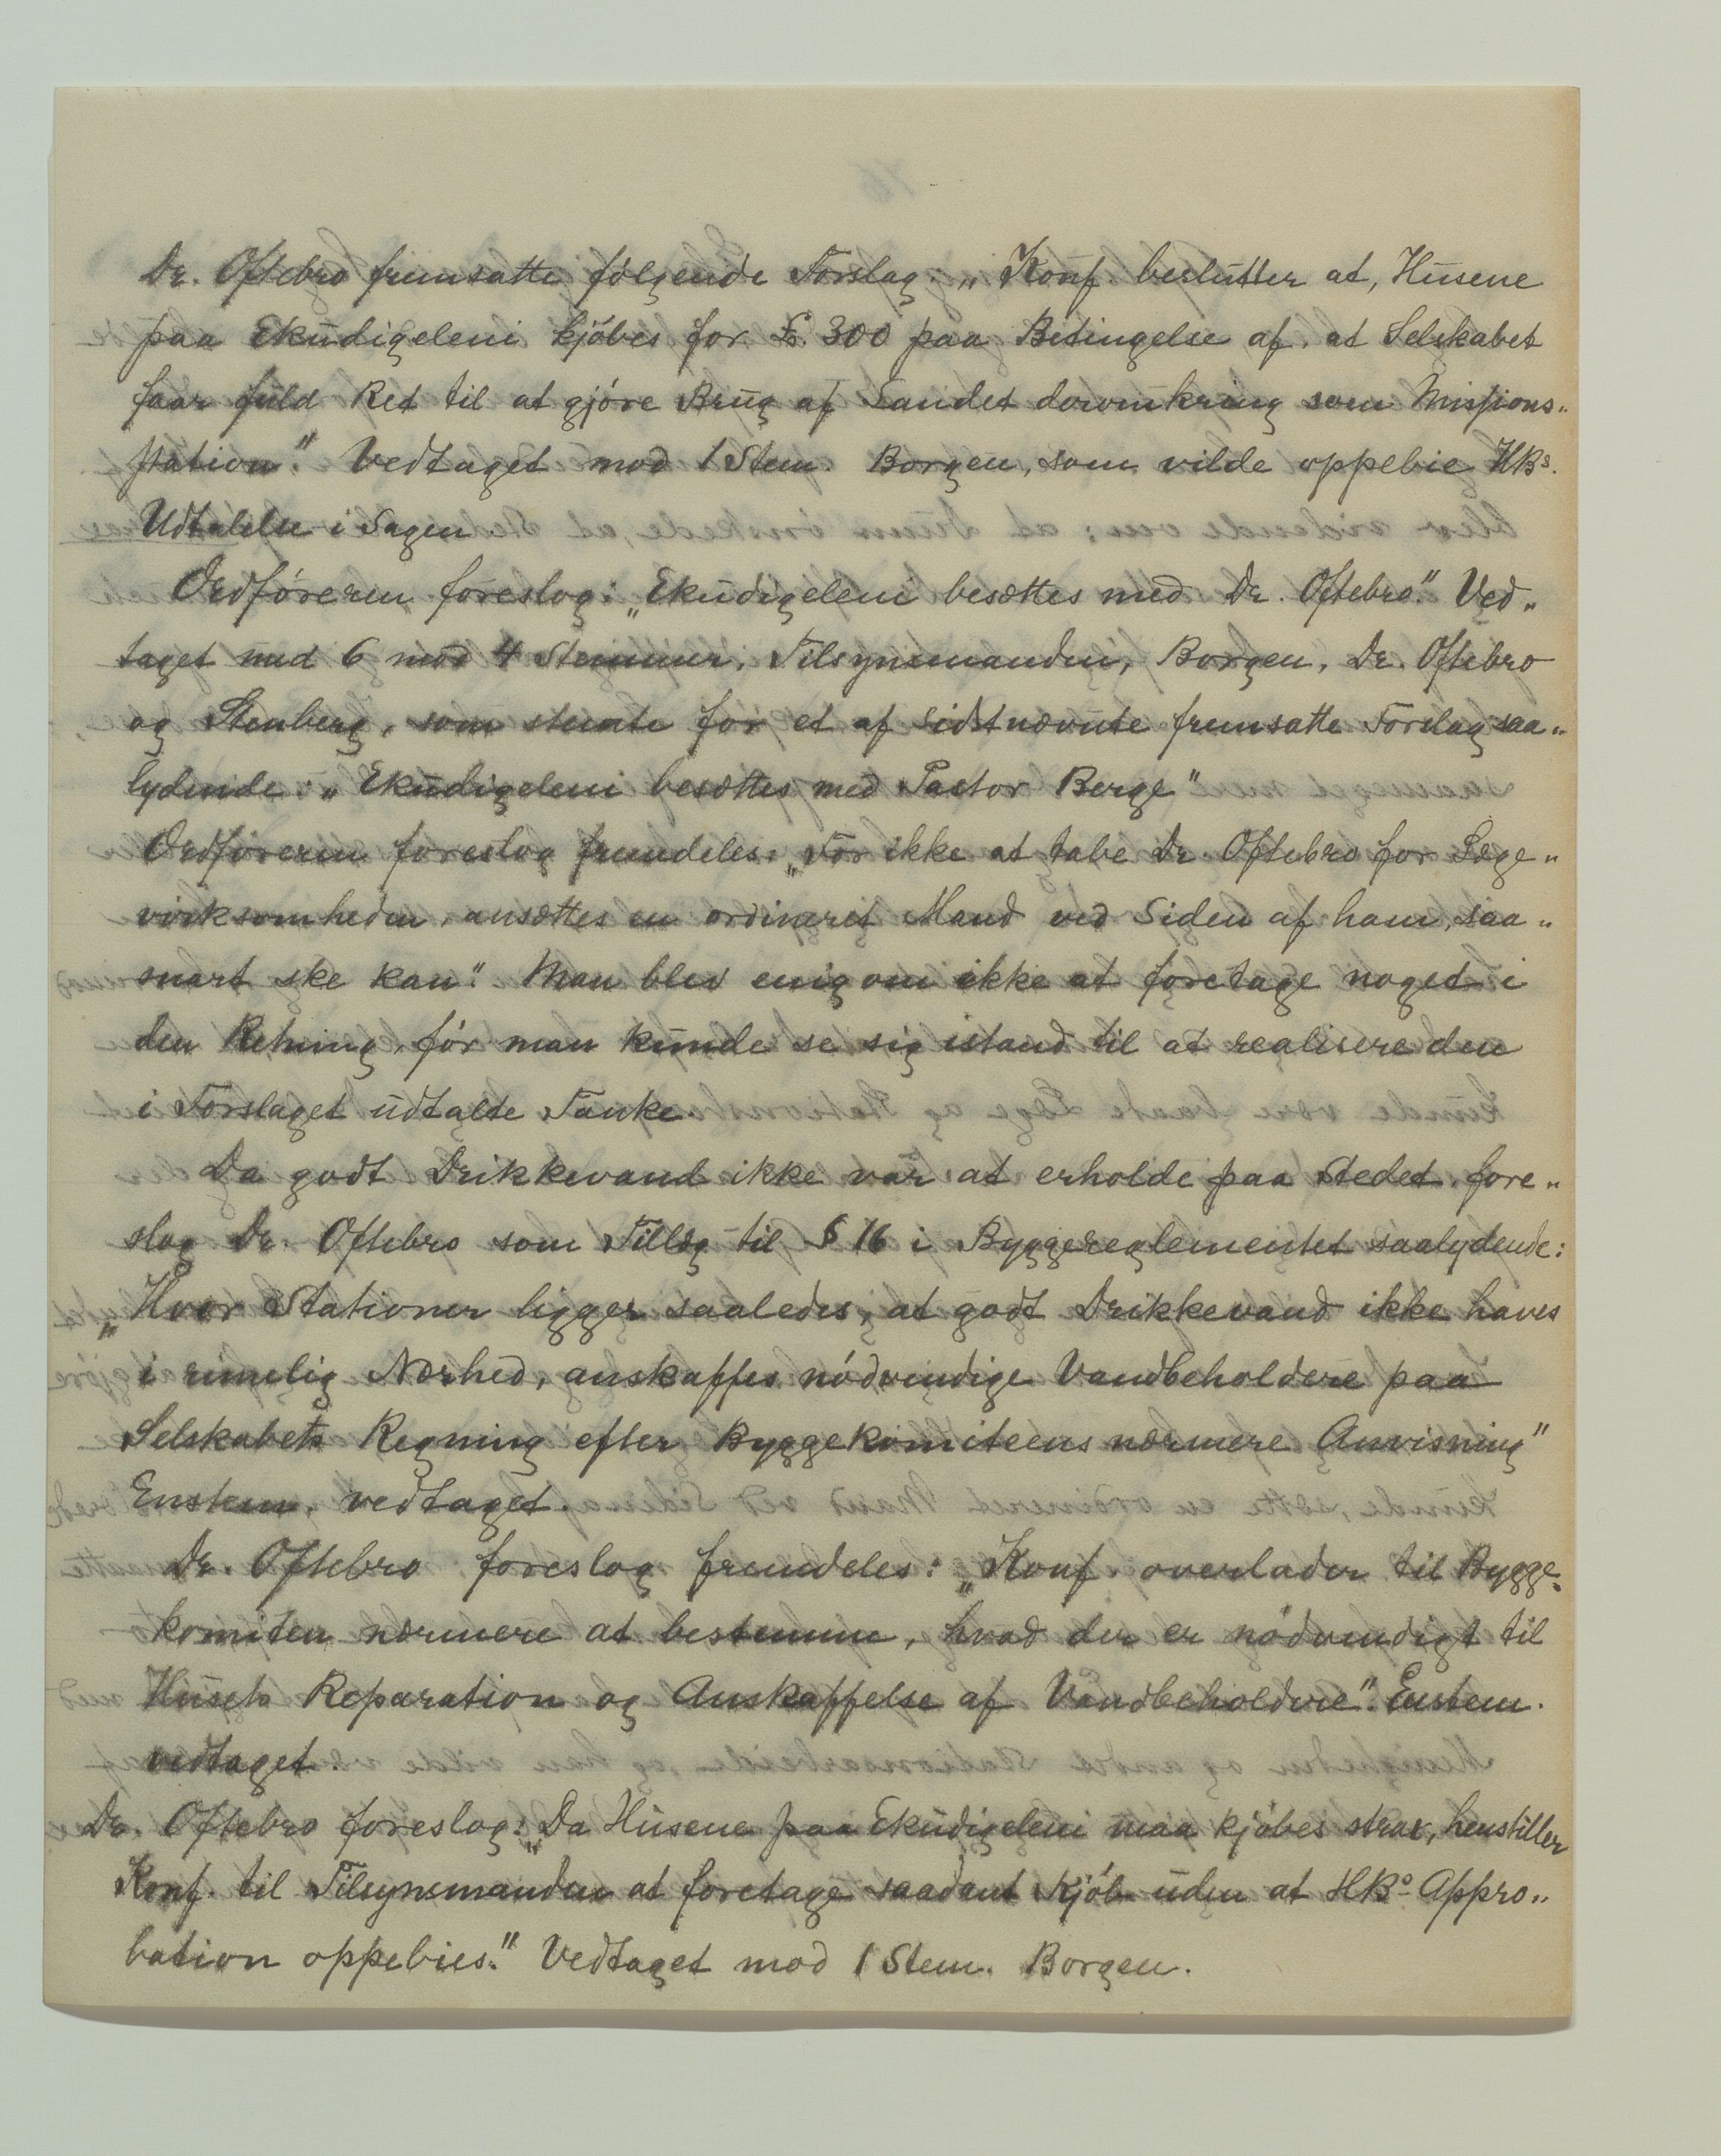 Dr. Oftebro fremsatte følgende Forslag: „Konf. beslutter at, Husene
paa Ekudigeleni kjøbes for £ 300 paa Betingelse af, at Selskabet
faar fuld Ret til at gjøre Brug af Landet deromkring som Missions„
station." Vedtaget mod 1 Stem. Borgen, som vilde oppebie HBs.
Udtalelse i Sagen
Ordføreren foreslog: „Ekudigeleni besættes med Dr. Oftebro." Ved„
taget med 6 mod 4 Stemmer, Tilsynsmanden, Borgen, Dr. Oftebro
og Stenberg, som stemte for et af sidstnævnte fremsatte Forslag saa„
lydende: „Ekudigeleni besættes med Pastor Berge"
Ordføreren foreslog fremdeles: „For ikke at tabe Dr. Oftebro for Læge„
virksomheden, ansættes en ordineret Mand ved Siden af ham, saa„
snart ske kan." Man blev enig om ikke at foretage noget i
den Retning, før man kunde se sig istand til at realisere den
i Forslaget udtalte Tanke.
Da godt Drikkevand ikke var at erholde paa Stedet, fore„
slog Dr. Oftebro som Tillæg til § 16 i Byggereglementet saalydende:
„Hvor Stationer ligger saaledes, at godt Drikkevand ikke haves
i rimelig Nærhed, anskaffes nødvendige Vandbeholdere paa
Selskabets Regning efter Byggekomiteens nærmere Anvisning"
Enstem. vedtaget.
Dr. Oftebro foreslog fremdeles: „Konf. overlader til Bygge„
komiteen nærmere at bestemme, hvad der er nødvendigt til
Husets Reparation og Anskaffelse af Vandbeholdere". Enstem.
vedtaget.
Dr. Oftebro foreslog: „Da Husene paa Ekudigeleni maa kjøbes strax, henstiller
Konf. til Tilsynsmanden at foretage saadant Kjøb uden at HBs Appro„
bation oppebies." Vedtaget mod 1 Stem. Borgen.